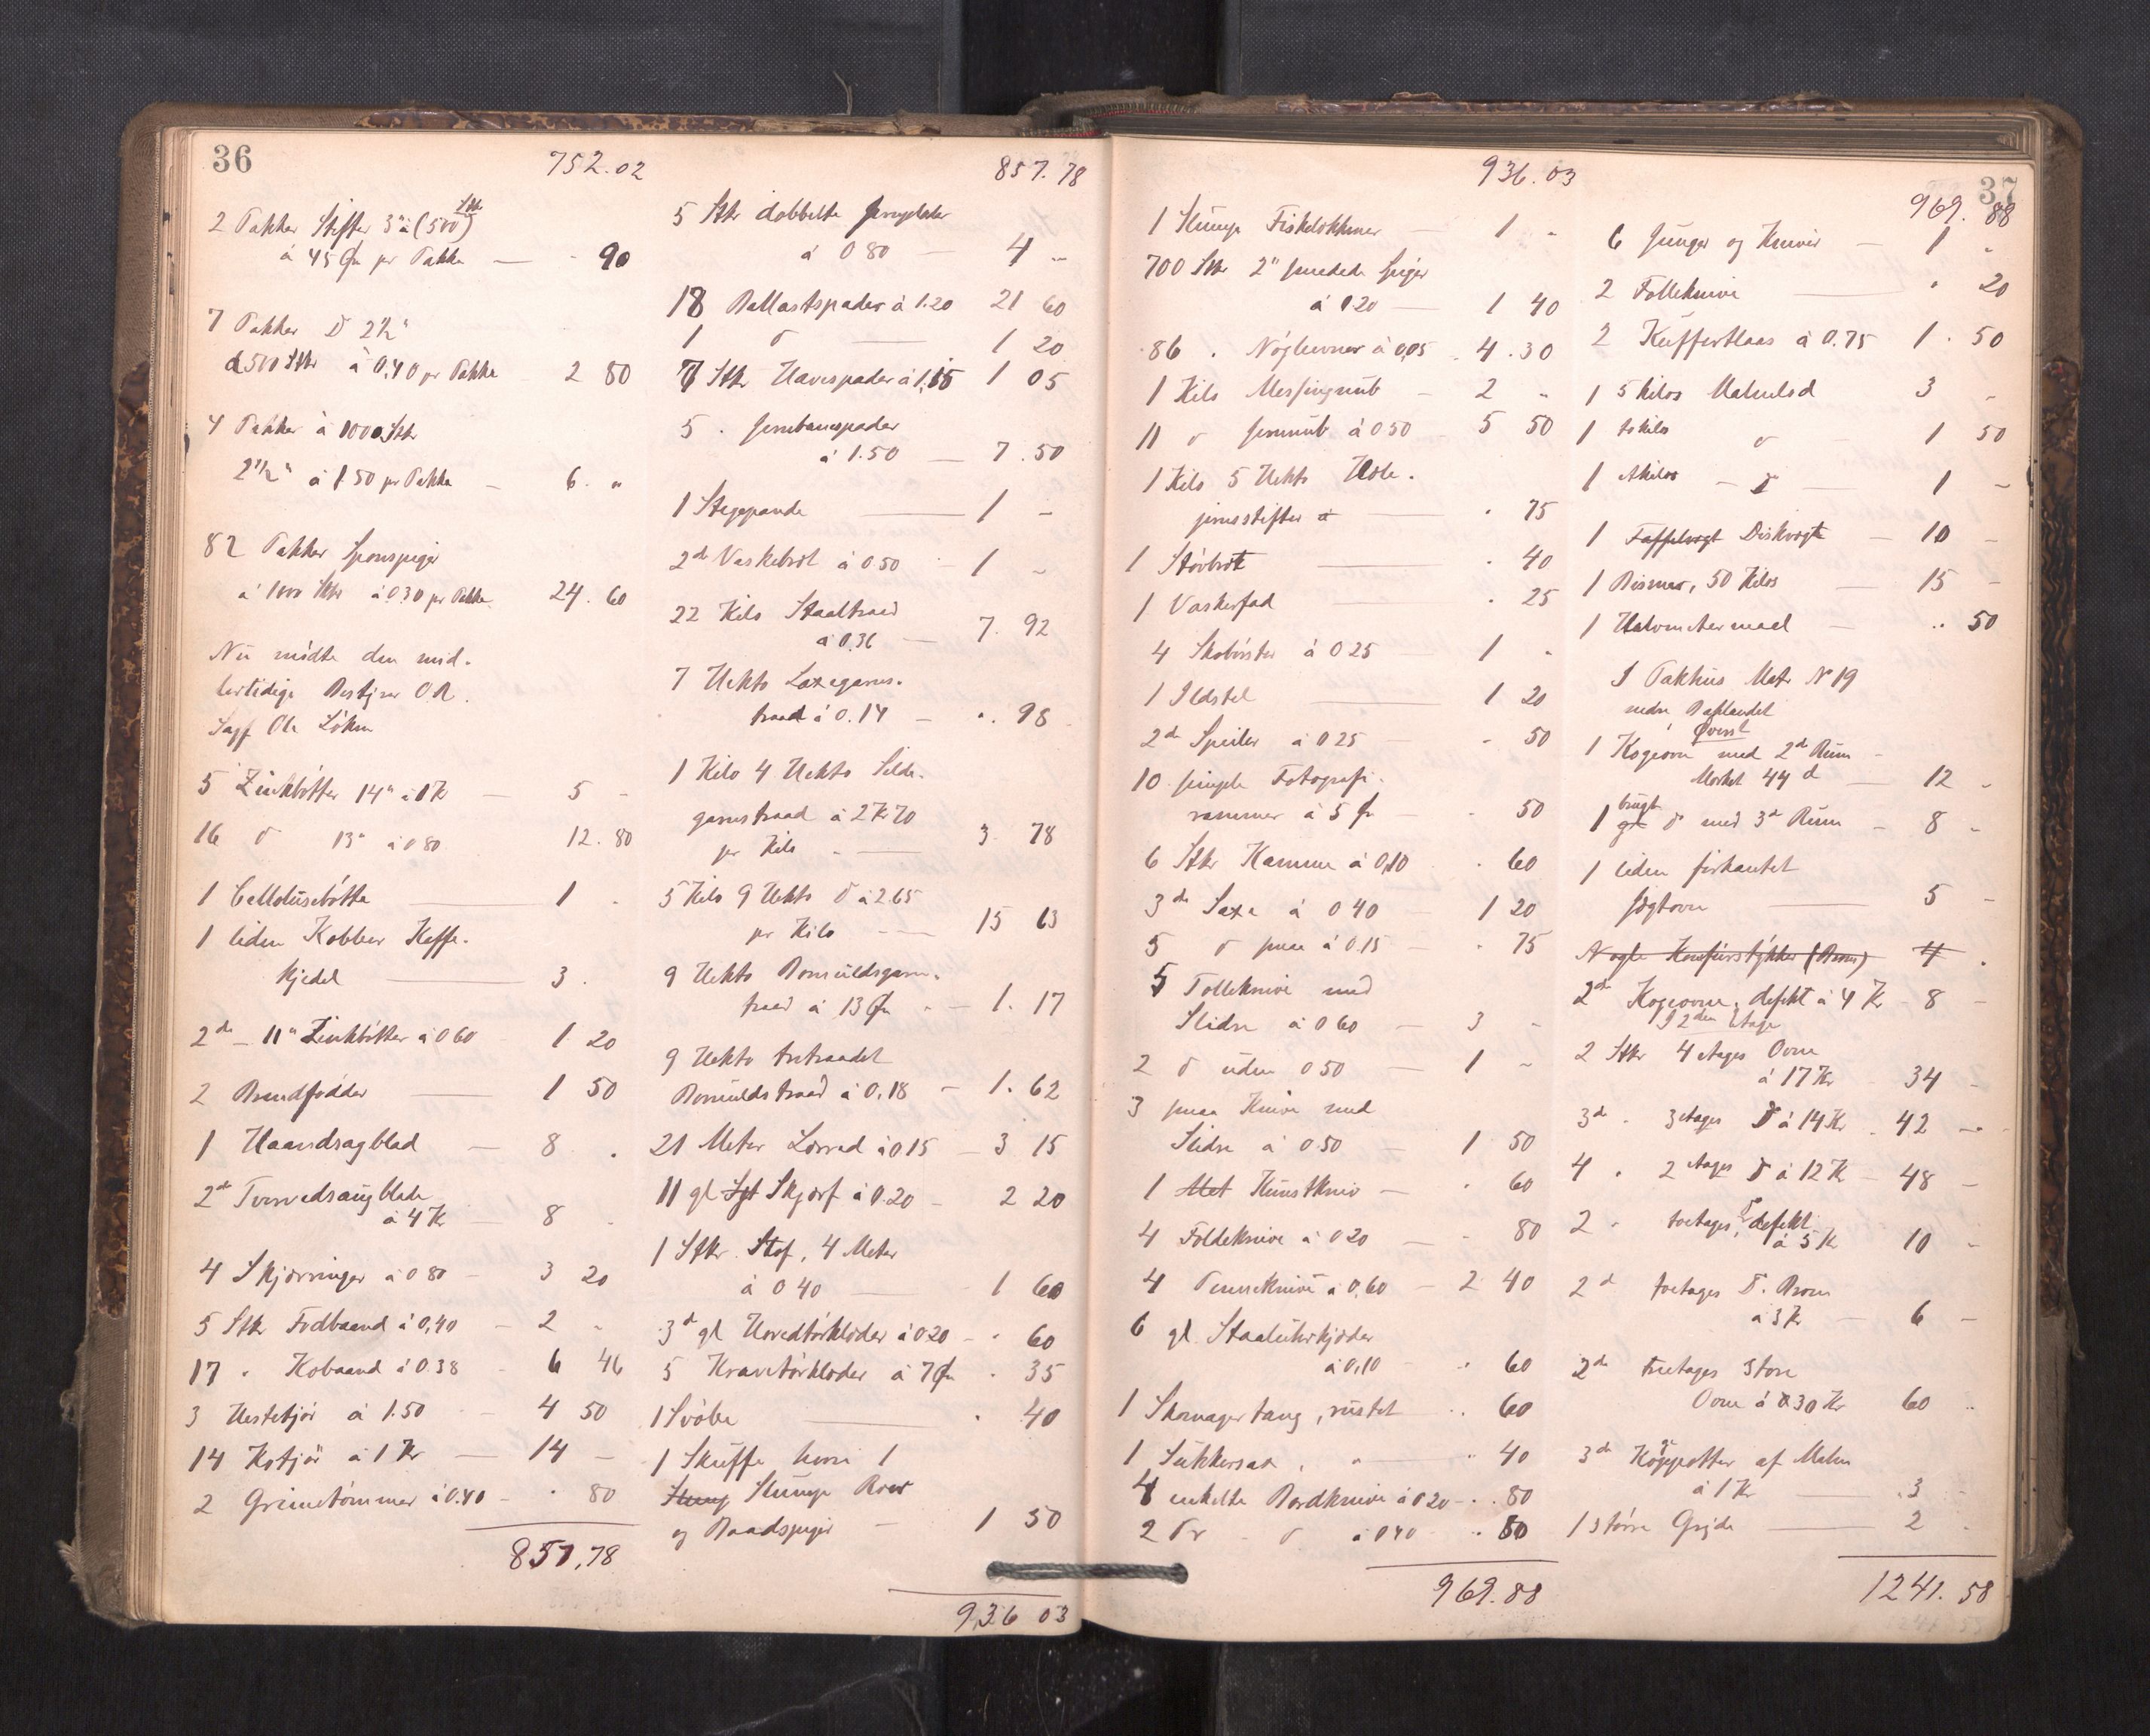 36
752.02
2 Pakker Stifter 3" à (500 Stk)
à 45 Øre pr Pakke — " 90
7 Pakker Do 2½"
à 500 Stkr à 0,40 pr Pakke 2 80
4 Pakker à 1000 Stkr
2½" à 1.50 pr Pakke — 6. "
82 Pakker Sponspiger
à 1000 Stkr à 0.30 pr Pakke 24.60
Nu mödte den mid-
lertidige Bestyrer O.R.
Sagf. Ole
5 Zinkbötter 14" à 1 Kr — 5 -
16 do 13" à 0 80 12.80
1 bötte — 1 -
1 liden Kobber Kaffe-
kjedel — 3.
2de — 11" Zinkbötter à 0 60 1 20
2 — 1 50
1 Haandsagblad — 8 .
2de Tvervedsaugblade
à 4 Kr — 8
4 Skjæringer à 0 80 — 3 20
5 Stkr Fodbaand à 0,40 — 2 -
17 " Kobaand à 0.38 — 6 46
3 Hestetjór à 1.50 — 4 50
14 Kotjór à 1 Kr — 14 -
2 Grimetömmer à 0.40 — " 80
857,78
857.78
5 Stkr dobbelte
à 0 80 — 4 -
18 Ballastspader à 1.20 21 60
1 do — 1 20
Stkr Havespader à 1 05
5 " Jernbanespader
à 1.50 — 7.50
1 Stegepande — 1 -
2de Vaskebret à 0.50 — 1 -
22 Kilo Staaltraad
à 0,36 — 7. 92
7 Hekto Laxegarns-
traad à 0.14 — ". 98
1 Kilo 4 Hekto Silde-
garnstraad à 2 Kr 70
pr Kilo — 3 78
5 Kilo 9 Hekto Do à 2.65
pr Kilo — 15 63
9 Hekto Bomuldsgarn-
traad à 13 Øre — 1. 17
9 Hekto tretraadet
Bomuldstraad à 0.18 — 1. 62
21 Meter Lærred à 0.15 — 3 15
11 gl Skjærf à 0.20 — 2 20
1 Stkr. Stof, 4 Meter
à 0 40 — 1 60
3de gl Hovedtörklæder à 0.20 — " 60
5 Kravetörklæder à 7 Øre " 35
1 Svöbe — " 40
1 Skuffe hvori 1
Slump Roer
og Baadspiger — 1 50
936 03
936.03
1 Slump Fiskelokkener — 1 "
700 Stkr 2" smedede Spiger
à 0.20 — 1 40
86 " Nöglerner à 0,05 4.30
1 Kilo Messingnub — 2 "
11 do Jernnub à 0 50 — 5 50
1 Kilo 5 Hekto
jernsstifter — " 75
1 Stövbret — " 40
1 Vaskefad — " 25
4 Skobörster à 0 25 — 1 "
1 Ildstel — 1 20
2de Speiler à 0 25 — " 50
10 simple Fotografi-
rammer à 5 Øre — " 50
6 Stkr Kamme à 0,10 " 60
3de Saxe à 0 40 — 1 20
5 do smaa à 0.15 — " 75
5 Tolleknive med
Slidre à 0 60 — 3 "
2 do uden 0 50 — 1 "
3 smaa Knive med
Slidre à 0.50 — 1 50
1 Kunstkniv — " 60
4 Foldeknive à 0 20 — " 80
4 Penneknive à 0,60 — 2 40
6 gl. Staaluhrkjæder
à 0,10 — " 60
1 Skomagertang, rustet " 60
1 Sukkersax " " 40
4 enkelte Bordknive à 0 20 — " 80
2 Pr do à 0 40 " 80
969.88
37
969. 88
6 og Kniver — 1 "
2 Tolleknive — " 20
2 Kuffertlaas à 0.75 1.50
1 5 Kilos Malmlod 3 -
1 to kilos do — 1 50
1 1 kilos — Do — 1 -
1 Taffelvægt Diskvægt — 10 -
1 Bismer, 50 Kilos — 15 -
1 Halvmetermaal — " 50
I Pakhus Matr No 19
nedre Baklandet
Øverst
1 Kogeovn med 2de Rum
Merket 44 d — 12 -
1 brugt do med 3de Rum — 8 -
1 liden firkantet
Sögtovn — 5 -
Nogle (Brun) 4
2de Kogeovne, defekt à 4 Kr — 8 -
I 2den Etage
2 Stkr 4 etages Ovne
à 17 Kr 34 -
3de " 3 etages Do à 14 Kr. 42 -
4 " 2 etages Do à 12 Kr — 48 -
2 " toetages Do, defekt
à 5 Kr 10 -
2de toetages Do.
à 3 Kr — 6 -
2de treetages Store
Ovne à 30 Kr 60 "
3de af Malm
à 1 Kr — 3 -
1 större Gryde — 2 .
1241. 58